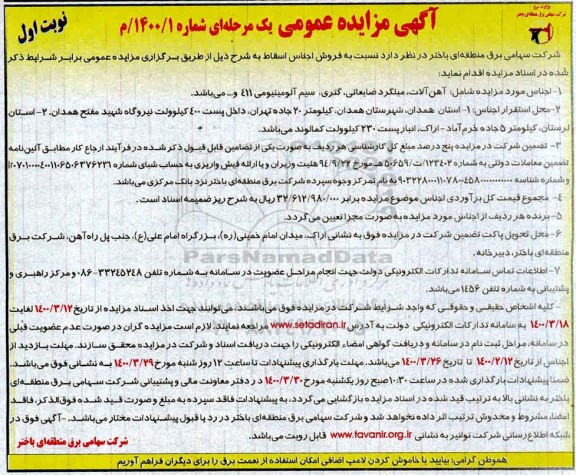 نوبت اول
آگهی مزایده عمومی یک مرحله‌ای شماره ۱۴۰۰/۱/م
وزارت نیرو
شرکت سهامی برق منطقه‌ای باختر
شرکت سهامی برق منطقه‌ای باختر در نظر دارد نسبت به فروش اجناس اسقاط به شرح ذیل از طریق برگزاری مزایده عمومی برابر شرایط ذکر
شده در اسناد مزایده اقدام نماید:
۱- اجناس مورد مزایده شامل: آهن‌آلات، میلگرد ضایعاتی، کنتور، سیم آلومینیومی ۴۱۱ و... می‌باشد.
۲- محل استقرار اجناس: ۱- استان همدان، شهرستان همدان، کیلومتر ۲۰ جاده تهران، داخل پست ۴۰۰ کیلوولت نیروگاه شهید مفتح همدان. ۲- استان
لرستان، کیلومتر ۵ جاده خرم‌آباد - اراک، انبار پست ۲۳۰ کیلوولت کمالوند می‌باشد.
۳- تضمین شرکت در مزایده پنج درصد مبلغ کل کارشناسی هر ردیف به صورت یکی از تضامین قابل قبول ذکر شده در فرآیند ارجاع کار مطابق آئین‌نامه
تضمین معاملات دولتی به شماره ۱۲۳۴۰۲/ت ۵۰۶۵۹ هـ مورخ ۹۴/۹/۲۲ هیئت وزیران و یا ارائه فیش واریزی به حساب شبای شماره
و شماره شناسه به نام تمرکز وجوه سپرده شرکت برق منطقه‌ای باختر نزد بانک مرکزی می‌باشد.
۴- مجموع قیمت کل برآوردی اجناس موضوع مزایده برابر ۳۲/۶۱۲/۹۸۰/۰۰۰ ریال به شرح ریز ضمیمه اسناد است.
۵- برنده هر ردیف از اجناس مورد مزایده به صورت مجزا تعیین می‌گردد.
۶- محل تحویل پاکت تضمین شرکت در مزایده فوق به نشانی اراک، میدان امام خمینی(ره)، بزرگراه امام علی(ع)، جنب پل راه‌آهن، شرکت برق
منطقه‌ای باختر، دبیرخانه.
۷- اطلاعات تماس سامانه تدارکات الکترونیکی دولت جهت انجام مراحل عضویت در سامانه به شماره تلفن ۳۳۲۴۵۲۴۸-۰۸۶ و مرکز راهبری و
پشتیبانی به شماره تلفن ۱۴۵۶ می‌باشد.
- کلیه اشخاص حقیقی و حقوقی که واجد شرایط شرکت در مزایده فوق می‌باشند، می‌توانند جهت اخذ اسناد مزایده از تاریخ ۱۴۰۰/۳/۱۲ لغایت
۱۴۰۰/۳/۱۸ به سامانه تدارکات الکترونیکی دولت به آدرس www.setadiran.ir مراجعه نمایند. لازم است مزایده گران در صورت عدم عضویت قبلی
در سامانه، مراحل ثبت نام در سامانه و دریافت گواهی امضاء الکترونیکی را جهت دریافت اسناد و شرکت در مزایده محقق سازند. مهلت بازدید از
اجناس از تاریخ ۱۴۰۰/۲/۱۲ تا تاریخ ۱۴۰۰/۳/۲۶ می‌باشد. مهلت بارگذاری پیشنهادات تا ساعت ۱۲ روز شنبه مورخ ۱۴۰۰/۳/۲۹ به نشانی فوق می‌باشد.
ضمنا پیشنهادات بارگذاری شده در ساعت ۱۰:۳۰ صبح روز یکشنبه مورخ ۱۴۰۰/۳/۳۰ در دفتر معاونت مالی و پشتیبانی شرکت سهامی برق منطقه‌ای
باختر به نشانی بالا به ترتیب قید شده در اسناد مزایده بازگشایی می‌گردد. به پیشنهادات فاقد سپرده به مبلغ و صورت قید شده فوق‌الذکر، فاقد
امضا، مشروط و مخدوش ترتیب اثر داده نخواهد شد و شرکت سهامی برق منطقه‌ای باختر در رد یا قبول پیشنهادات مختار می‌باشد. - آگهی فوق در
شبکه اطلاع‌رسانی شرکت توانیر به نشانی www.tavanir.org.ir قابل رویت می‌باشد.
شرکت سهامی برق منطقه‌ای باختر
هموطن گرامی: بیایید با خاموش کردن لامپ اضافی امکان استفاده از نعمت برق را برای دیگران فراهم آوریم
ParsNamadData